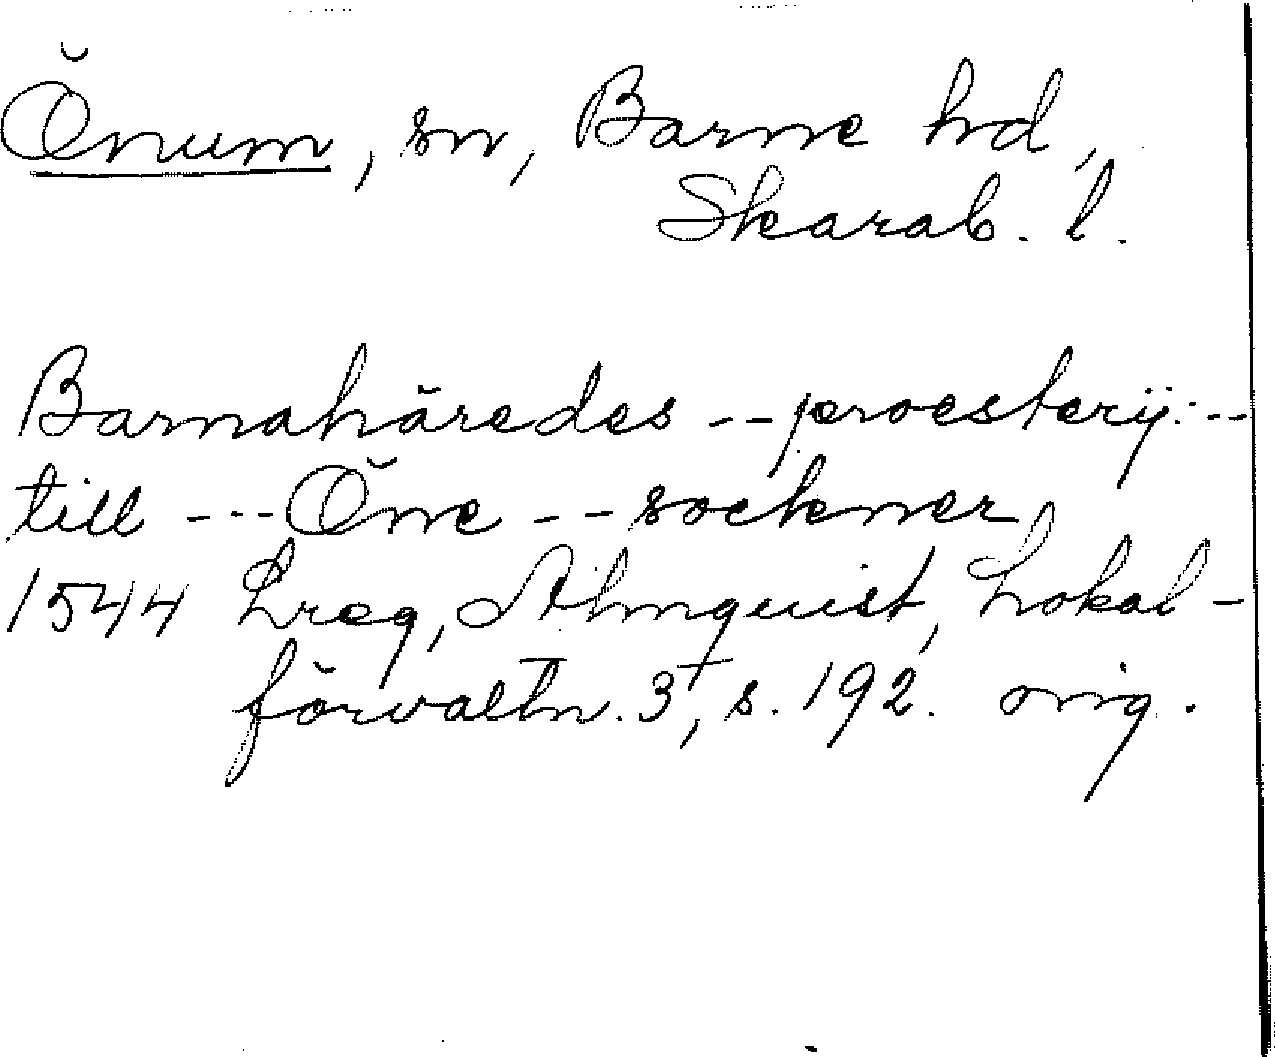 Önum, sn, Barne hd,
Skarab. l.
Barnahäredes -- proesterij: --
till --- Öne -- sockener
1544 Lreg, Almquist, Lokal-
förvaltn. 3, s. 192. orig.